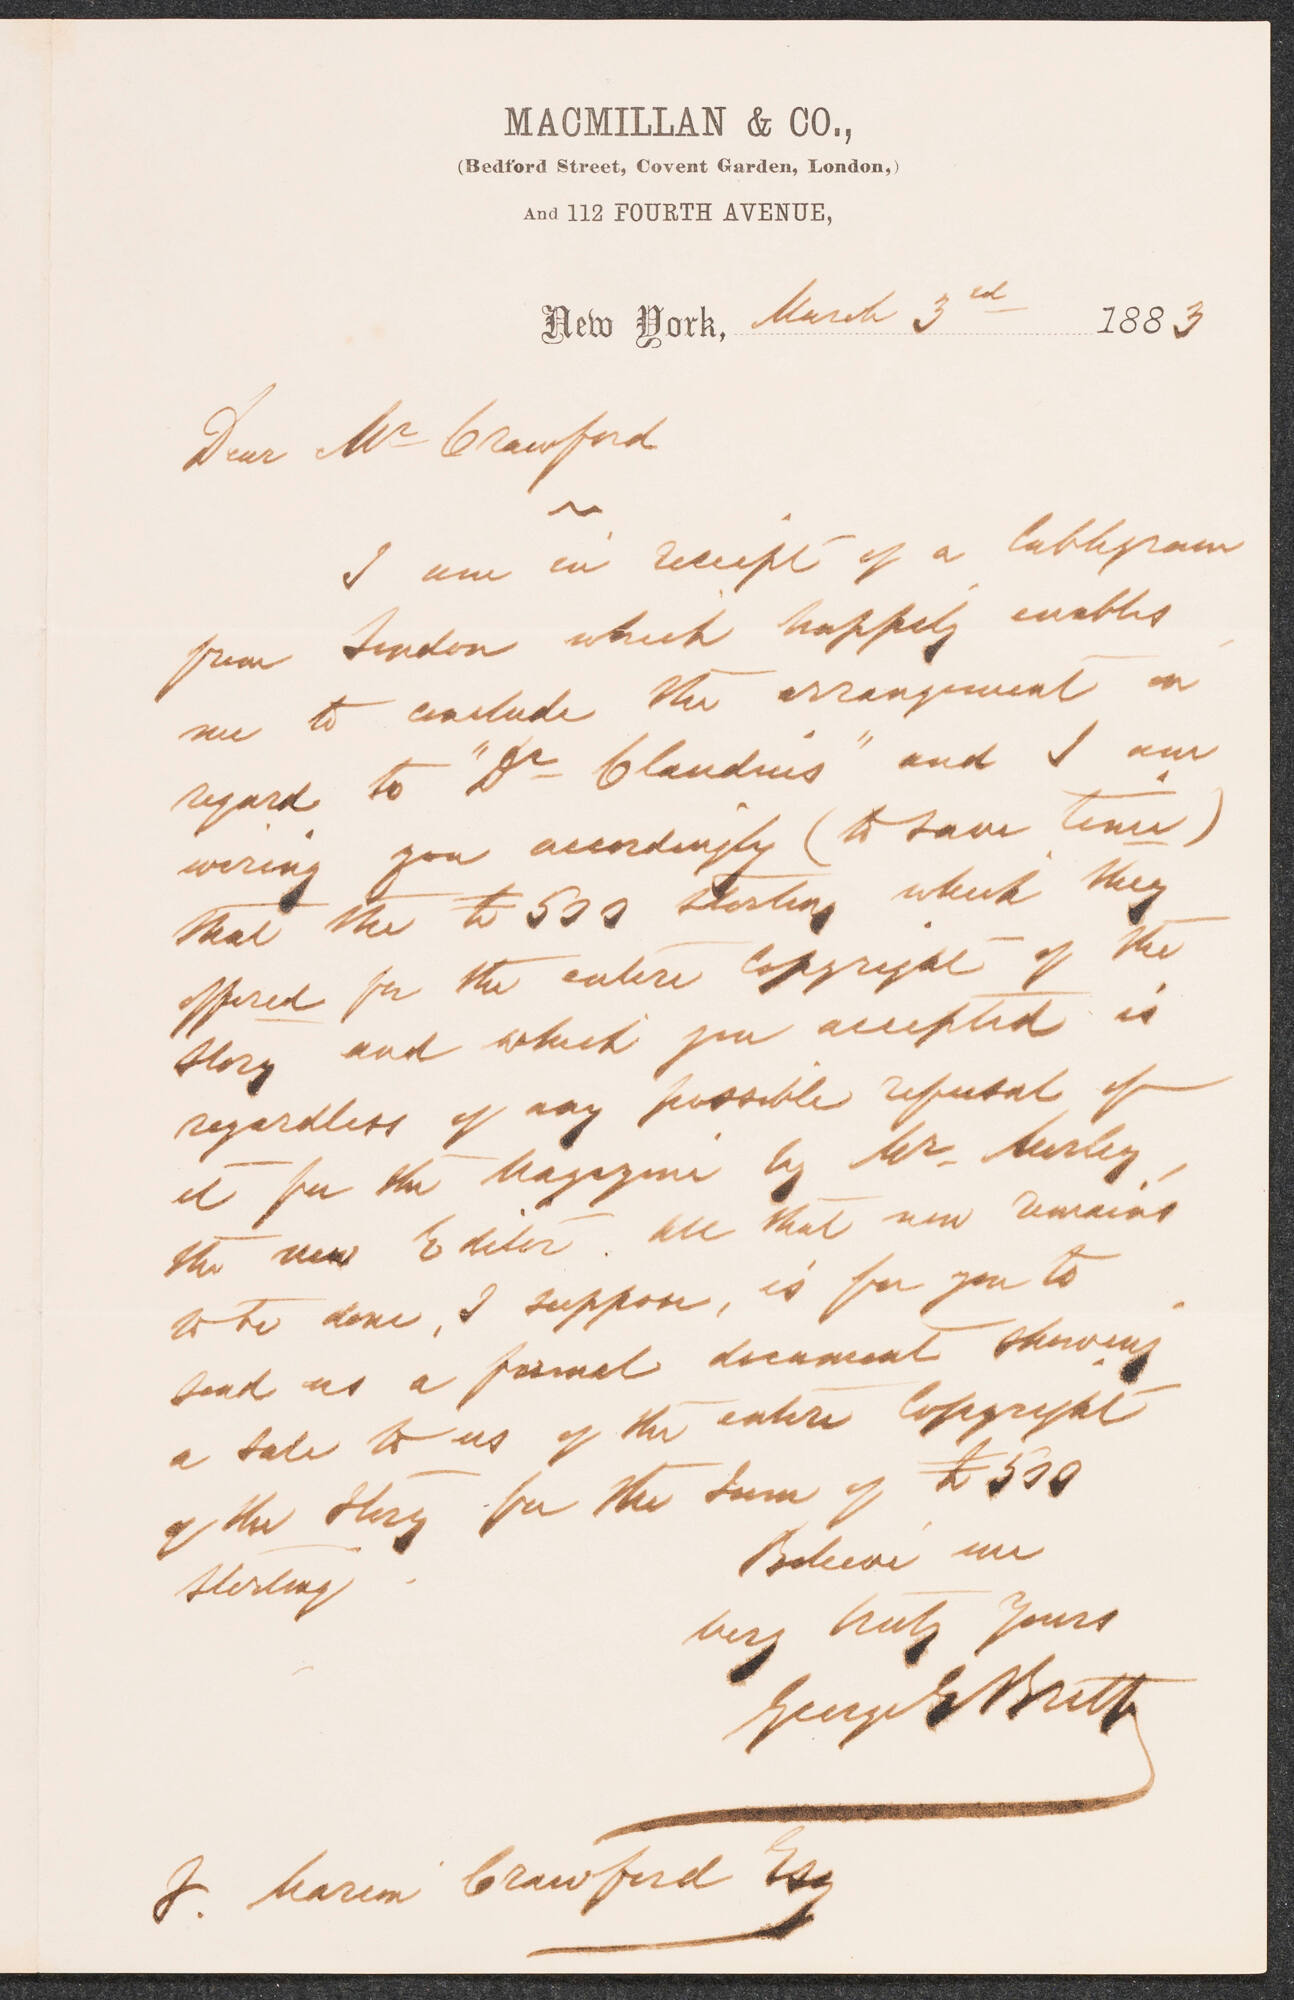 MACMILLAN & CO.,
(Bedford Street, Covent Garden, London,)
And 112 FOURTH AVENUE,
New York, March 3rd 1883
Dear Mr Crawford
I am in receipt of a Cablegram
from London which happily enables
me to conclude the arrangement in
regard to "Dr Claudius" and I am
wiring you accordingly (to save time)
that the £500 sterling which they
offered for the entire Copyright of the
story and which you accepted is
regardless of any possible refusal of
it for the Magazine by Mr. Morley,
the new Editor. All that now remains
to be done, I suppose, is for you to
send us a formal document showing
a sale to us of the entire Copyright
of the Story for the Sum of £500
Sterling.
Believe me
very truly Yours
George E Brett
F. Marion Crawford Esq